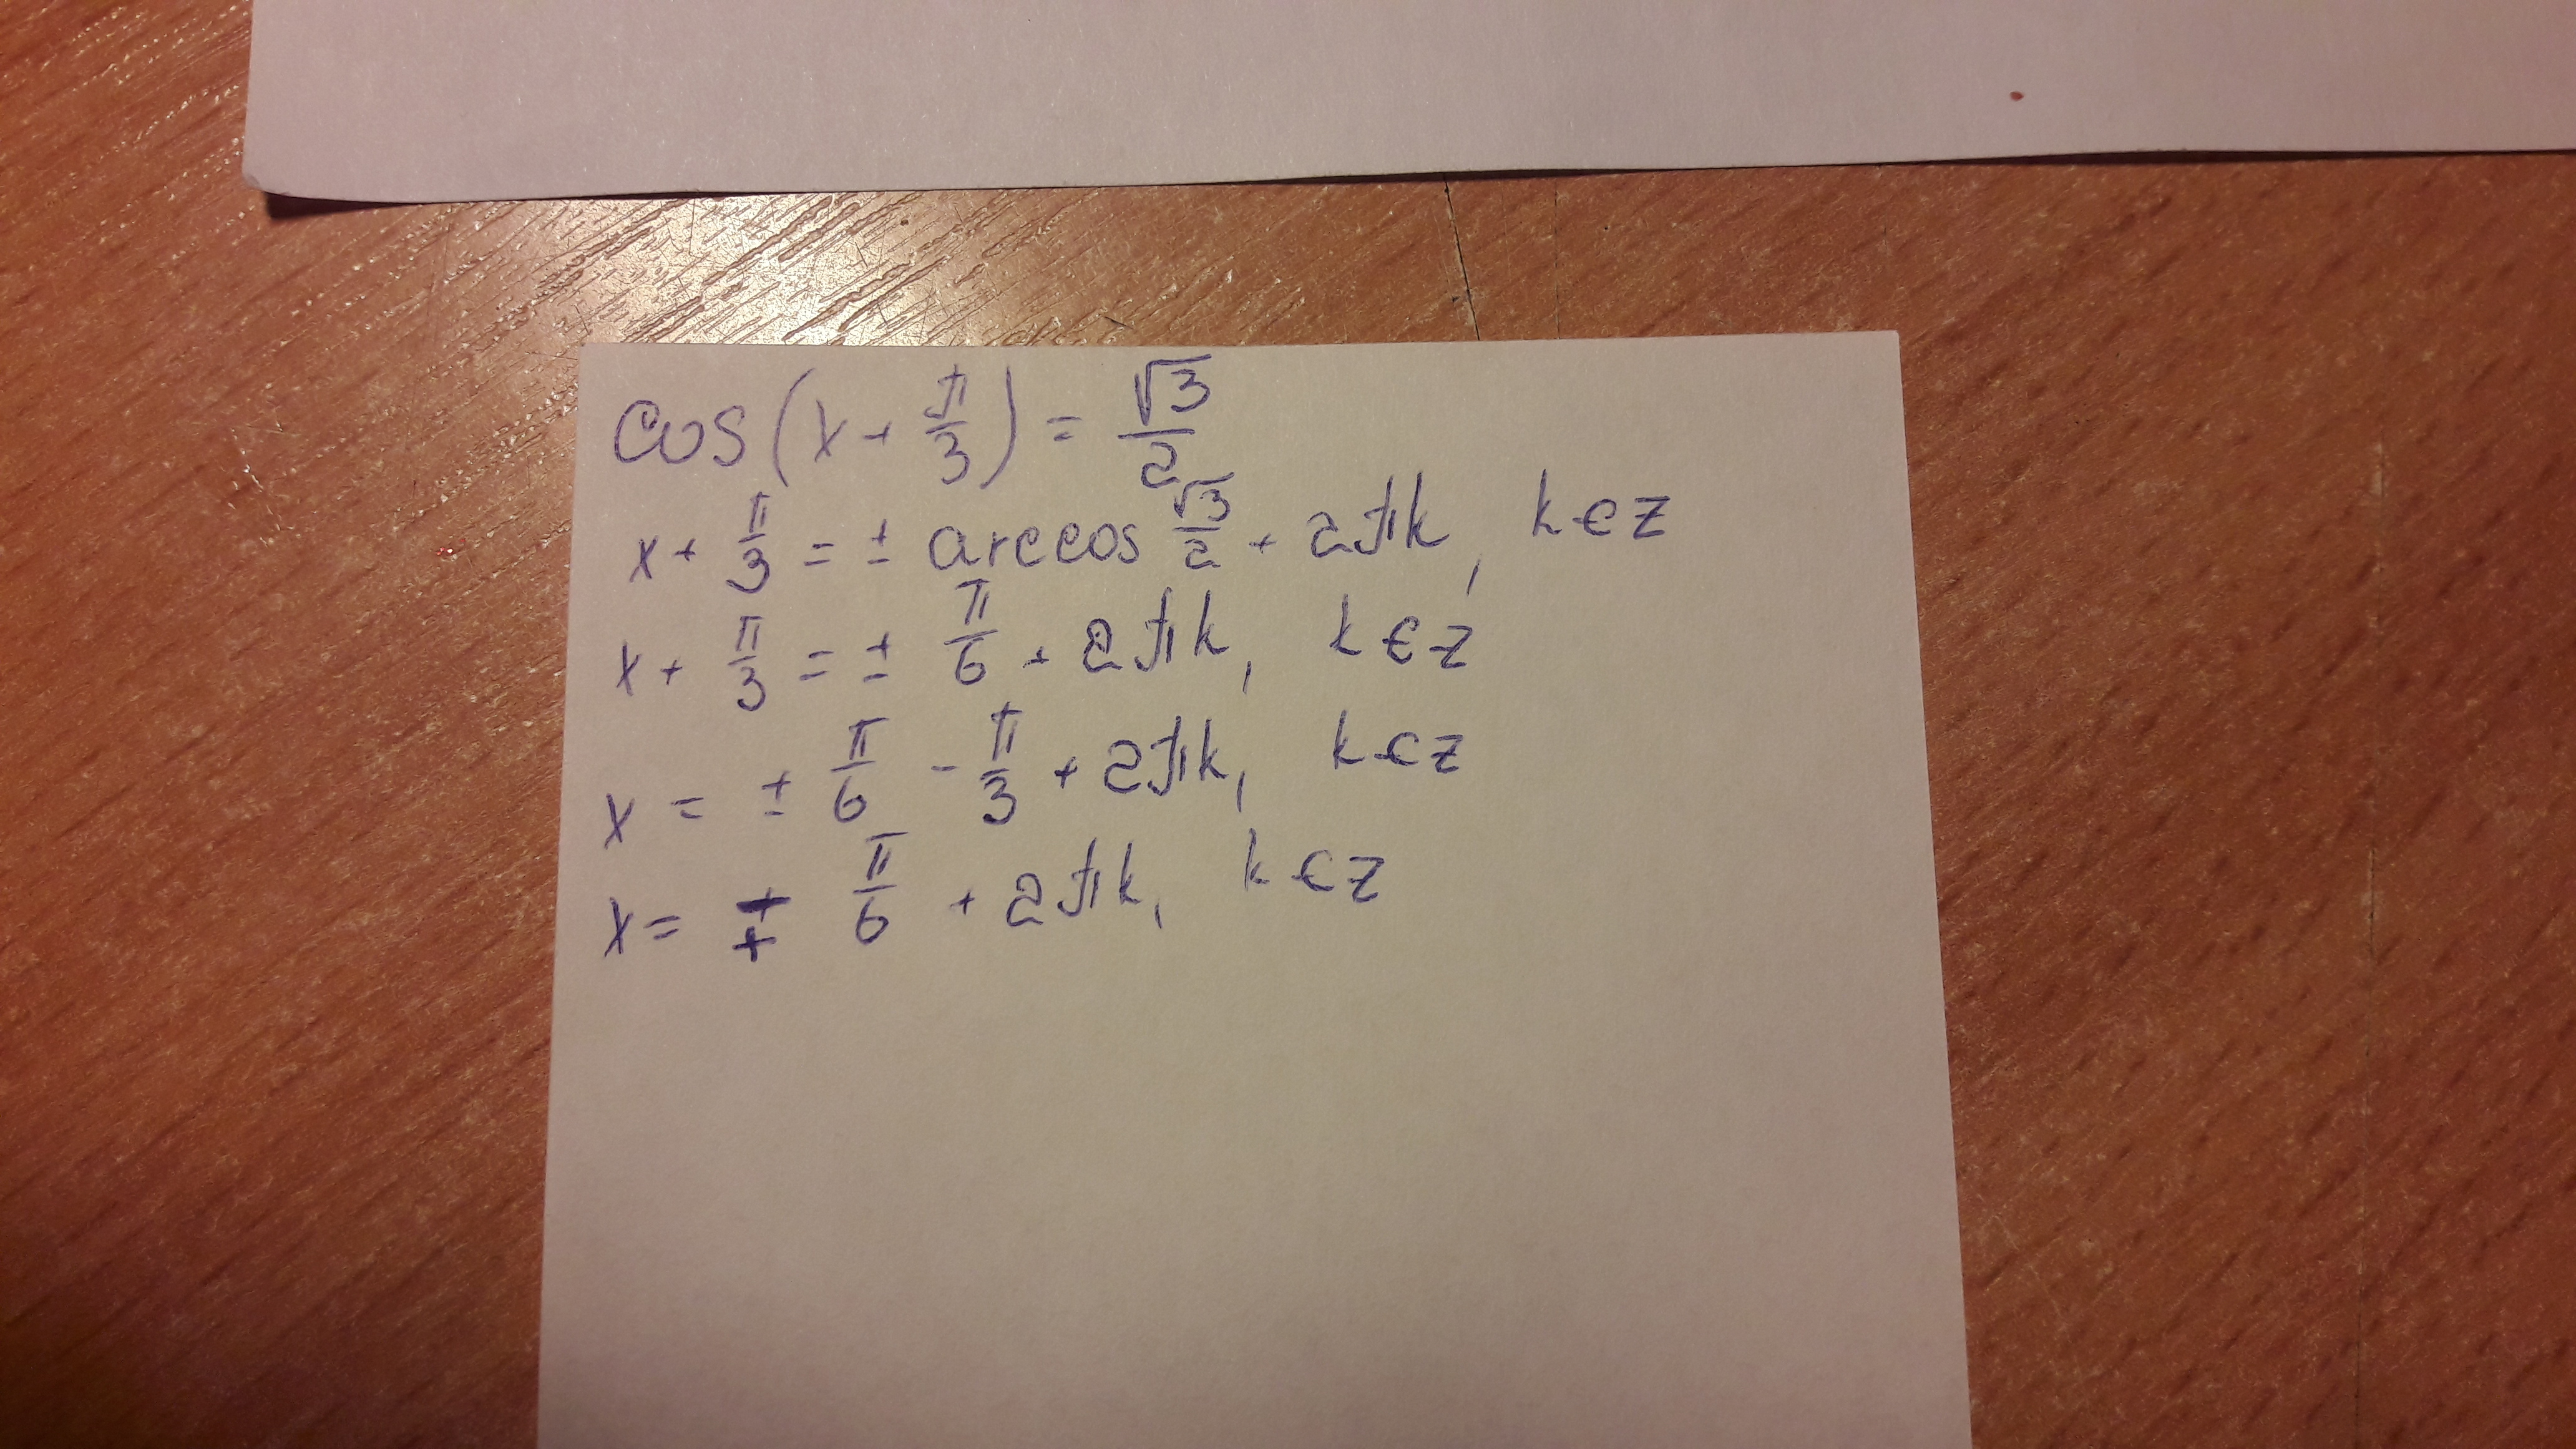 cos(x + π/3) = √3/2
x + π/3 = ± arccos √3/2 + 2πk, k ∈ z
x + π/3 = ± π/6 + 2πk, k ∈ z
x = ± π/6 - π/3 + 2πk, k ∈ z
x = ∓ π/6 + 2πk, k ∈ z